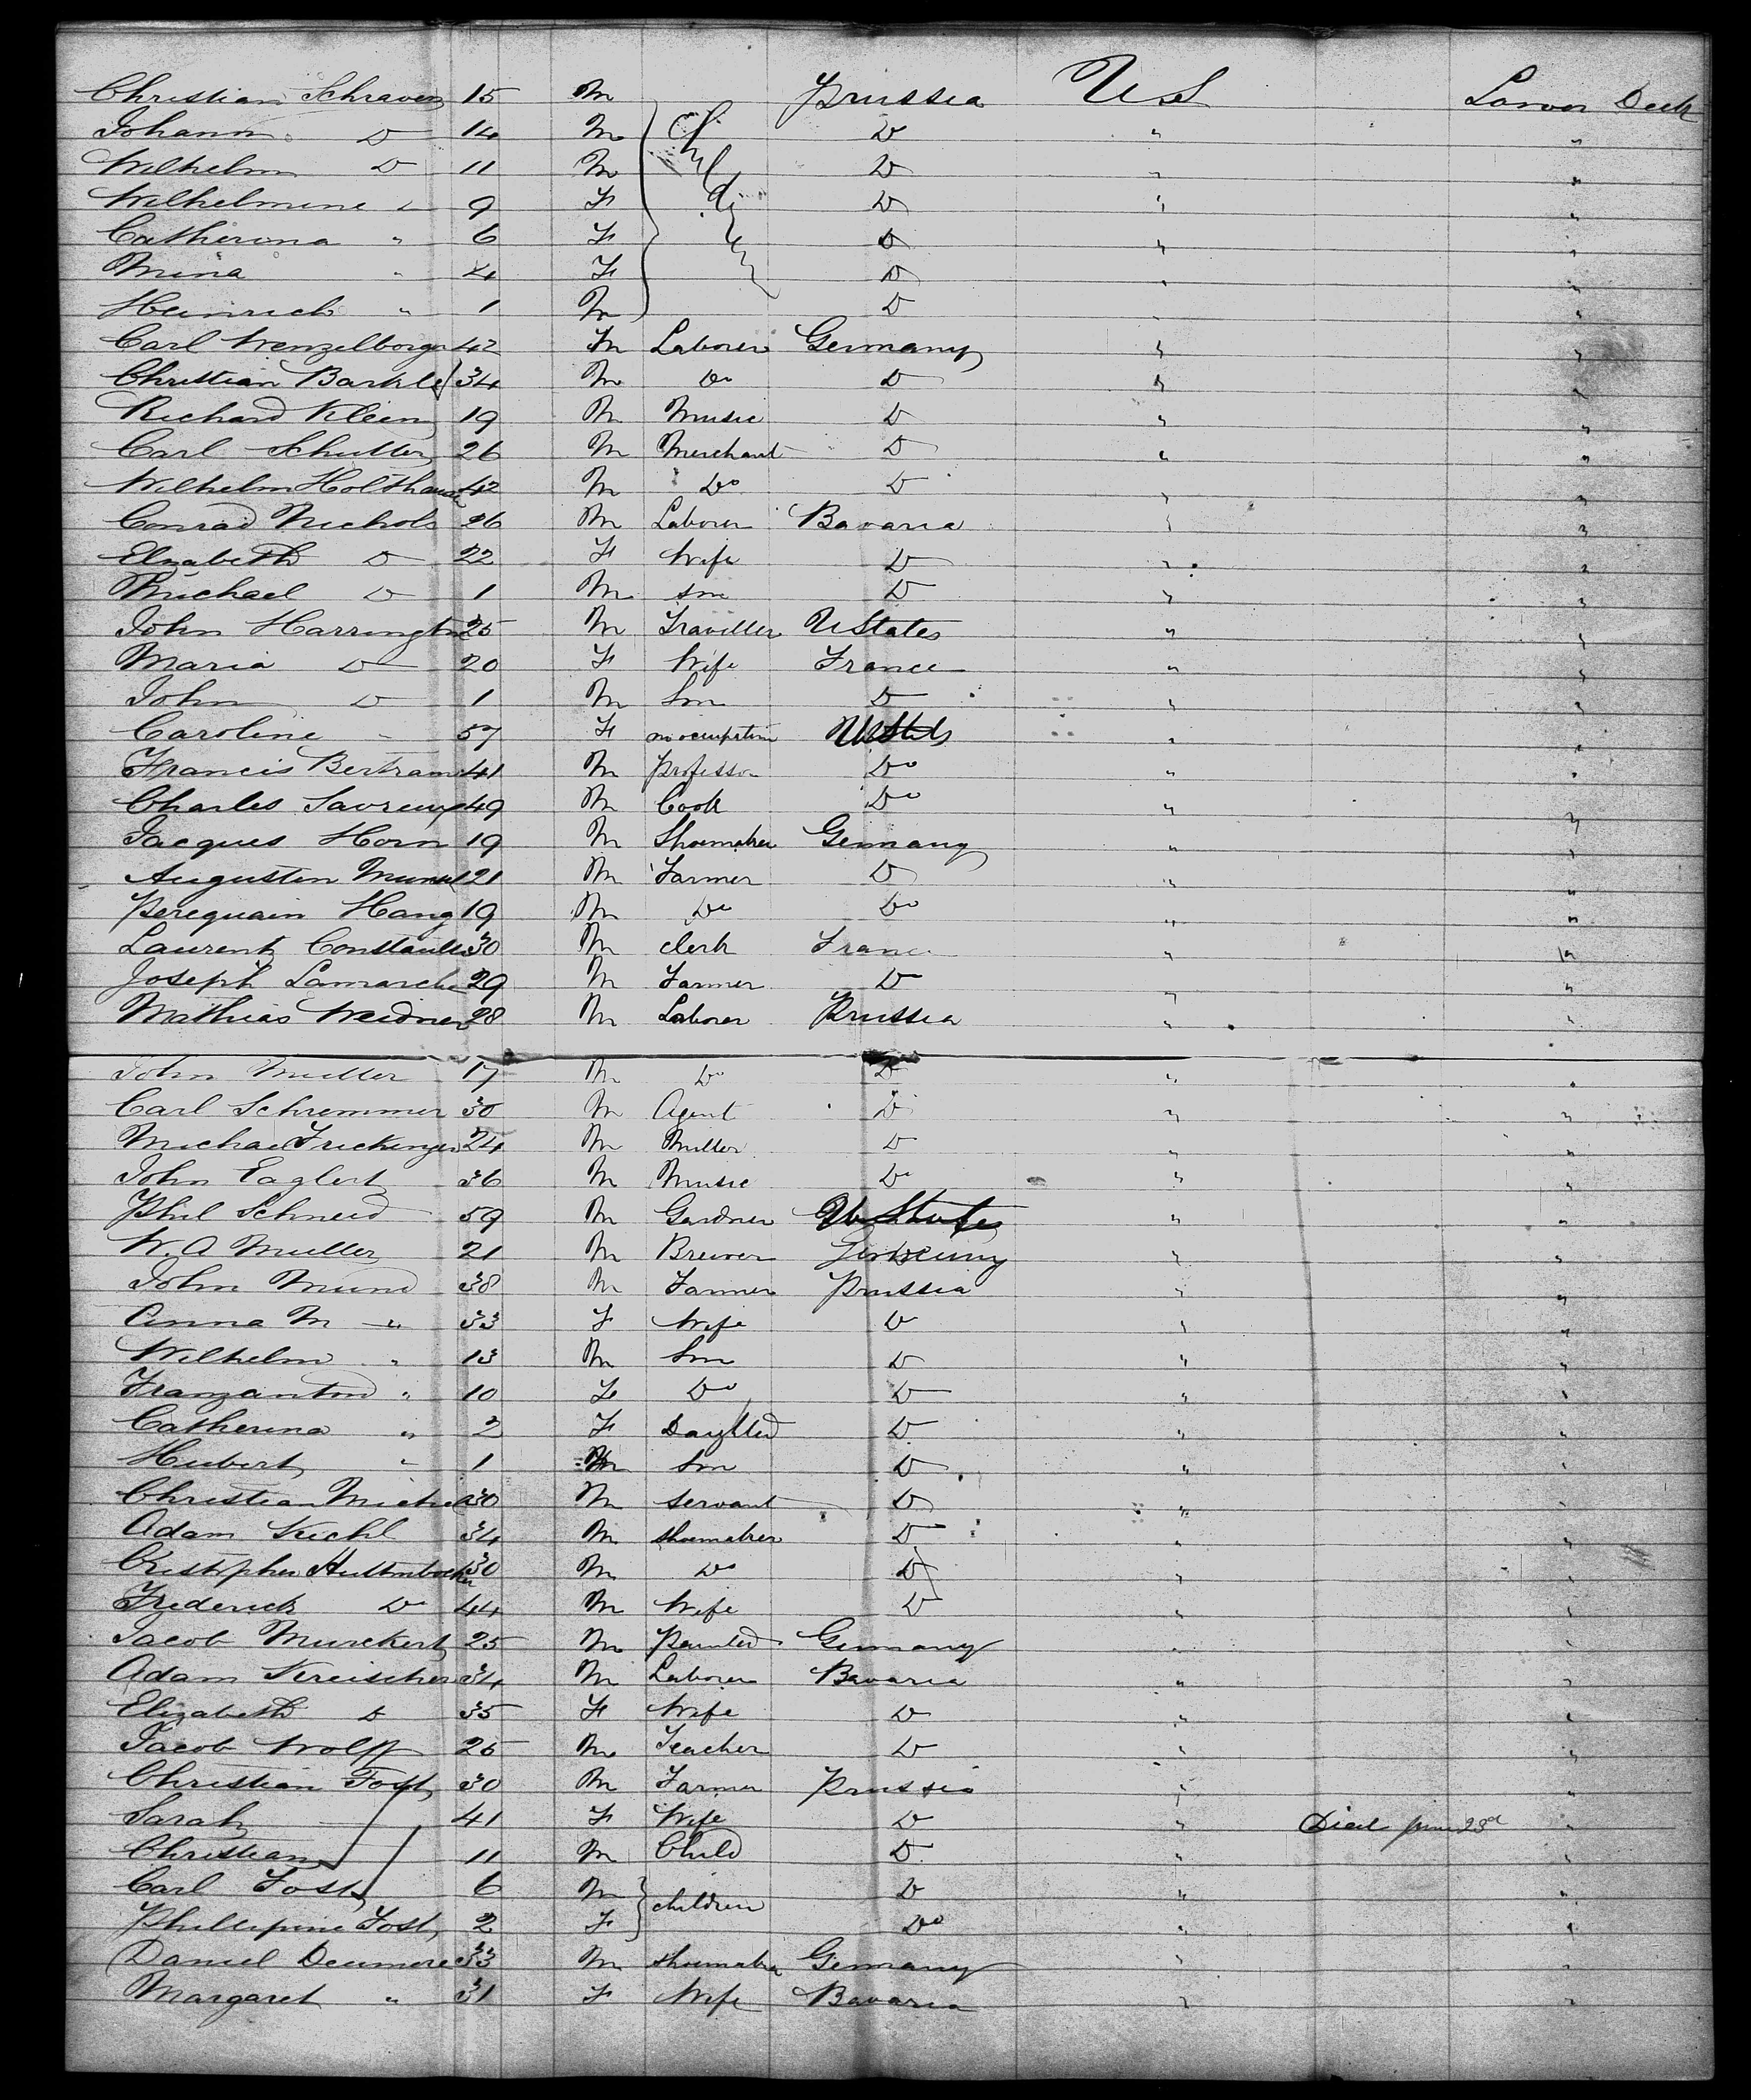 Christian Schraven 15 M Prussia U S Lower Deck
Johann D 14 M Children D " "
Wilhelm D 11 M D " "
Wilhelmine " 9 F D " "
Catherina " 6 F D " "
Mina " 4 F D " "
Heinrich " 1 M D " "
Carl Wenzelborger 42 M Laborer Germany " "
Christian Barkle 34 M Do D " "
Richard Klein 19 M Music D " "
Carl Schutter 26 M Merchant D " "
Wilhelm Holthaus 42 M Do D " "
Conrad Nichols 26 M Laborer Bavaria " "
Elizabeth D 22 F Wife D " "
Michael D 1 M son D " "
John Harrington 25 M Traveller UStates " "
Maria D 20 F Wife France " "
John D 1 M Son D " "
Caroline " 57 F no occupation UStates " "
Francis Bertram 41 M Professor Do " "
Charles 49 M Cook Do " "
Jacques Horn 19 M Shoemaker Germany " "
Augustin 21 M Farmer D " "
Perequain Hang 19 M Do Do " "
Laurentz 30 M clerk France " "
Joseph Lamarche 29 M Farmer D " "
Mathias Weidner 28 M Laborer Prussia " "
John Muller 17 M D D " "
Carl Schremmer 30 M Agent D " "
Michael Frickinger 24 M Miller D " "
John Eaglert 36 M Music Do " "
Phil Schneid 59 M Gardner U States " "
W. A Muller 21 M Brewer Germany " "
John Mund 38 M Farmer Prussia " "
Anna M " 33 F Wife D " "
Wilhelm " 13 M Son D " "
Franzanton " 10 F Do D " "
Catherina " 2 F D " "
Hubert " 1 M Son D " "
Christian 30 M servant D " "
Adam Kiehl 34 M shoemaker D " "
30 M Do D " "
Frederick Do 44 M Wife D " "
Jacob Murckert 25 M Germany " "
Adam Kreischer 34 M Laborer Bavaria " "
Elizabeth D 35 F Wife D " "
Jacob Wolff 25 M Teacher D " "
Christian Fost 30 M Farmer Prussia " "
Sarah 41 F Wife D " Died June 23d "
Christian 11 M Child D " "
Carl Fost 6 M children D " "
Phillipine Fost 2 F Do " "
Daniel 33 M shoemaker Germany " "
Margaret " 31 F Wife Bavaria " "